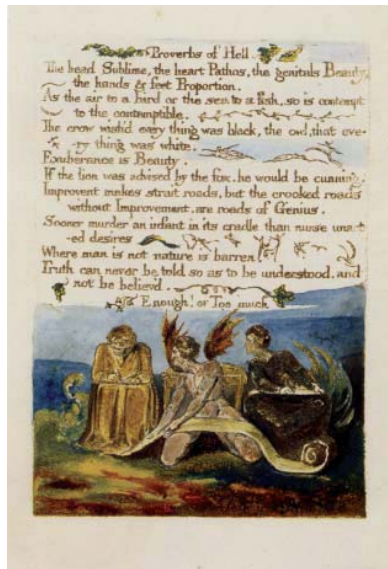 Proverbs of Hell.
The head Sublime, the heart Pathos, the genitals Beauty
the hands & feet Proportion.
As the air to a bird or the sea to a fish, so is contempt
to the contemptible.
The crow wish'd every thing was black, the owl, that eve-
ry thing was white.
Exuberance is Beauty.
If the lion was advised by the fox, he would be cunning.
Improvent makes strait roads, but the crooked roads
without Improvement, are roads of Genius.
Sooner murder an infant in its cradle than nurse unact-
-ed desires
Where man is not nature is barren.
Truth can never be told so as to be understood, and
not be believ'd.
Enough! or Too much